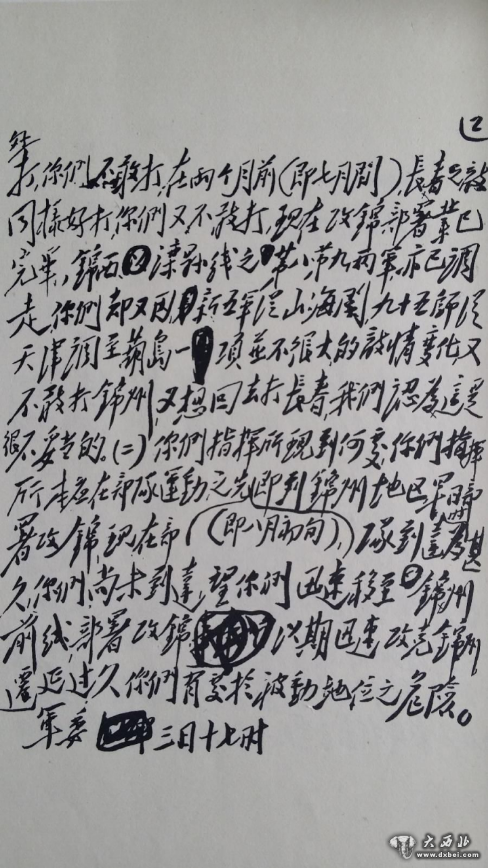 口
能打,你們不敢打,在兩个月前(即七月間),長春之敵
同樣好打,你們又不敢打,現在攻錦部署業已
完畢,錦西灤縣线之第八第九兩軍亦已調
走,你們却又因新五軍從山海關九十五師從
天津調至葫島一項並不很大的敵情变化又
不敢打錦州,又想回去打長春,我們認為這是
很不妥当的。(二)你們指揮所現到何處,你們指揮
所本应在部隊運動之先(即八月初旬),即到錦州地区,早日部
署攻錦,現在部隊到達為時甚
久,你們尚未到達,望你們迅速移至錦州
前线,部署攻錦,以期迅速攻克錦州,
遷延过久,你們有處於被動地位之危險。
軍委
三日十七时
大西北
www.dxbei.com